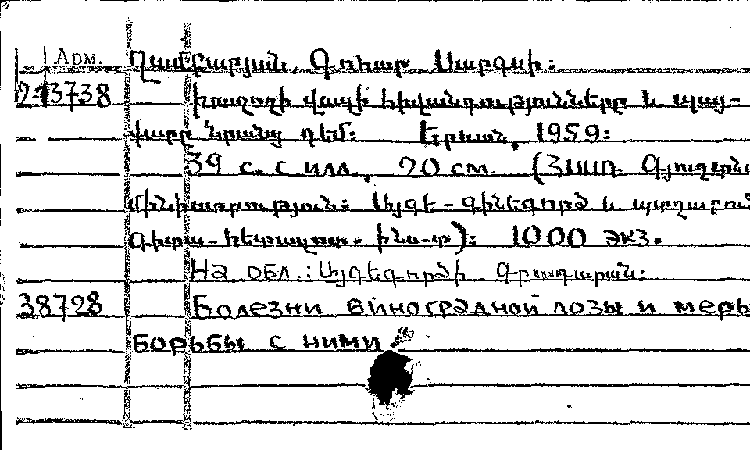 Арм.
Ղամբարյան, Գոհար Սարգսի:
2-13738 Խաղողի վազի հիվանդությունները և պայ-
քարը նրանց դեմ: Երևան, 1959:
39 с. с илл., 20 см. (ՀՍՍՌ Գյուղատն
մինիստրություն: Այգե-գինեգործ և պտղաբուծ
գիտա-հետազոտ. ինս-տ): 1000 экз.
На обл.: Այգեգործի գրադարան:
38728 Болезни виноградной лозы и меры
борьбы с ними.